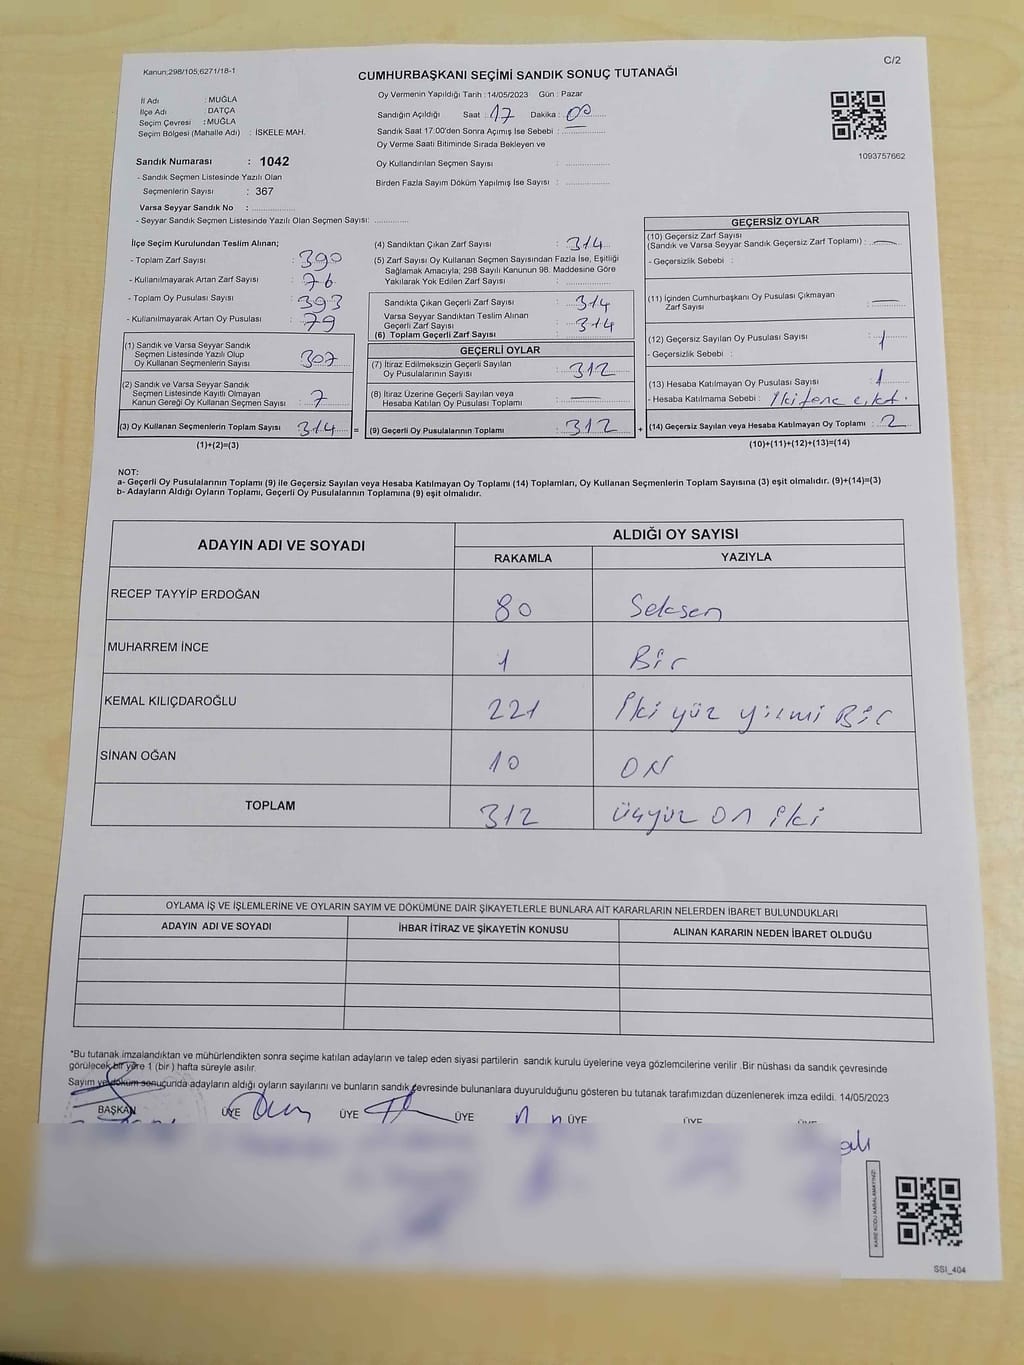 Kanun;298/105;6271/18-1
C/2
CUMHURBAŞKANI SEÇİMİ SANDIK SONUÇ TUTANAĞI
İl Adı : MUĞLA
İlçe Adı : DATÇA
Seçim Çevresi : MUĞLA
Seçim Bölgesi (Mahalle Adı) : İSKELE MAH.
Oy Vermenin Yapıldığı Tarih : 14/05/2023 Gün : Pazar
Sandığın Açıldığı Saat : 17 Dakika : 00
Sandık Saat 17:00'den Sonra Açımış İse Sebebi :
Oy Verme Saati Bitiminde Sırada Bekleyen ve
Oy Kullandırılan Seçmen Sayısı :
Birden Fazla Sayım Döküm Yapılmış İse Sayısı :
1093757662
Sandık Numarası : 1042
- Sandık Seçmen Listesinde Yazılı Olan
Seçmenlerin Sayısı : 367
Varsa Seyyar Sandık No :
- Seyyar Sandık Seçmen Listesinde Yazılı Olan Seçmen Sayısı:
İlçe Seçim Kurulundan Teslim Alınan;
- Toplam Zarf Sayısı : 390
- Kullanılmayarak Artan Zarf Sayısı : 76
- Toplam Oy Pusulası Sayısı : 393
- Kullanılmayarak Artan Oy Pusulası : 79
(1) Sandık ve Varsa Seyyar Sandık
Seçmen Listesinde Yazılı Olup
Oy Kullanan Seçmenlerin Sayısı : 307
(2) Sandık ve Varsa Seyyar Sandık
Seçmen Listesinde Kayıtlı Olmayan
Kanun Gereği Oy Kullanan Seçmen Sayısı : 7
(3) Oy Kullanan Seçmenlerin Toplam Sayısı : 314 =
(1)+(2)=(3)
(4) Sandıktan Çıkan Zarf Sayısı : 314
(5) Zarf Sayısı Oy Kullanan Seçmen Sayısından Fazla İse, Eşitliği
Sağlamak Amacıyla; 298 Sayılı Kanunun 98. Maddesine Göre
Yakılarak Yok Edilen Zarf Sayısı :
Sandıkta Çıkan Geçerli Zarf Sayısı : 314
Varsa Seyyar Sandıktan Teslim Alınan
Geçerli Zarf Sayısı : 314
(6) Toplam Geçerli Zarf Sayısı
GEÇERLİ OYLAR
(7) İtiraz Edilmeksizin Geçerli Sayılan
Oy Pusulalarının Sayısı : 312
(8) İtiraz Üzerine Geçerli Sayılan veya
Hesaba Katılan Oy Pusulaları Toplamı : —
(9) Geçerli Oy Pusulalarının Toplamı : 312 +
GEÇERSİZ OYLAR
(10) Geçersiz Zarf Sayısı
(Sandık ve Varsa Seyyar Sandık Geçersiz Zarf Toplamı) : —
- Geçersizlik Sebebi :
(11) İçinden Cumhurbaşkanı Oy Pusulası Çıkmayan
Zarf Sayısı : —
(12) Geçersiz Sayılan Oy Pusulası Sayısı : 1
- Geçersizlik Sebebi :
(13) Hesaba Katılmayan Oy Pusulası Sayısı : 1
- Hesaba Katılmama Sebebi : İki tane çıktı.
(14) Geçersiz Sayılan veya Hesaba Katılmayan Oy Toplamı : 2
(10)+(11)+(12)+(13)=(14)
NOT:
a- Geçerli Oy Pusulalarının Toplamı (9) ile Geçersiz Sayılan veya Hesaba Katılmayan Oy Toplamı (14) Toplamları, Oy Kullanan Seçmenlerin Toplam Sayısına (3) eşit olmalıdır. (9)+(14)=(3)
b- Adayların Aldığı Oyların Toplamı, Geçerli Oy Pusulalarının Toplamına (9) eşit olmalıdır.
ADAYIN ADI VE SOYADI
ALDIĞI OY SAYISI
RAKAMLA YAZIYLA
RECEP TAYYİP ERDOĞAN 80 Seksen
MUHARREM İNCE 1 Bir
KEMAL KILIÇDAROĞLU 221 İki yüz yirmi Bir
SİNAN OĞAN 10 ON
TOPLAM 312 Üçyüz on iki
OYLAMA İŞ VE İŞLEMLERİNE VE OYLARIN SAYIM VE DÖKÜMÜNE DAİR ŞİKAYETLERLE BUNLARA AİT KARARLARIN NELERDEN İBARET BULUNDUKLARI
ADAYIN ADI VE SOYADI İHBAR İTİRAZ VE ŞİKAYETİN KONUSU ALINAN KARARIN NEDEN İBARET OLDUĞU
*Bu tutanak imzalandıktan ve mühürlendikten sonra seçime katılan adayların ve talep eden siyasi partilerin sandık kurulu üyelerine veya gözlemcilerine verilir .Bir nüshası da sandık çevresinde
görülecek bir yere 1 (bir ) hafta süreyle asılır.
Sayım ve döküm sonucunda adayların aldığı oyların sayılarını ve bunların sandık çevresinde bulunanlara duyurulduğunu gösteren bu tutanak tarafımızdan düzenlenerek imza edildi. 14/05/2023
BAŞKAN ÜYE ÜYE ÜYE ÜYE ÜYE
SSİ_404